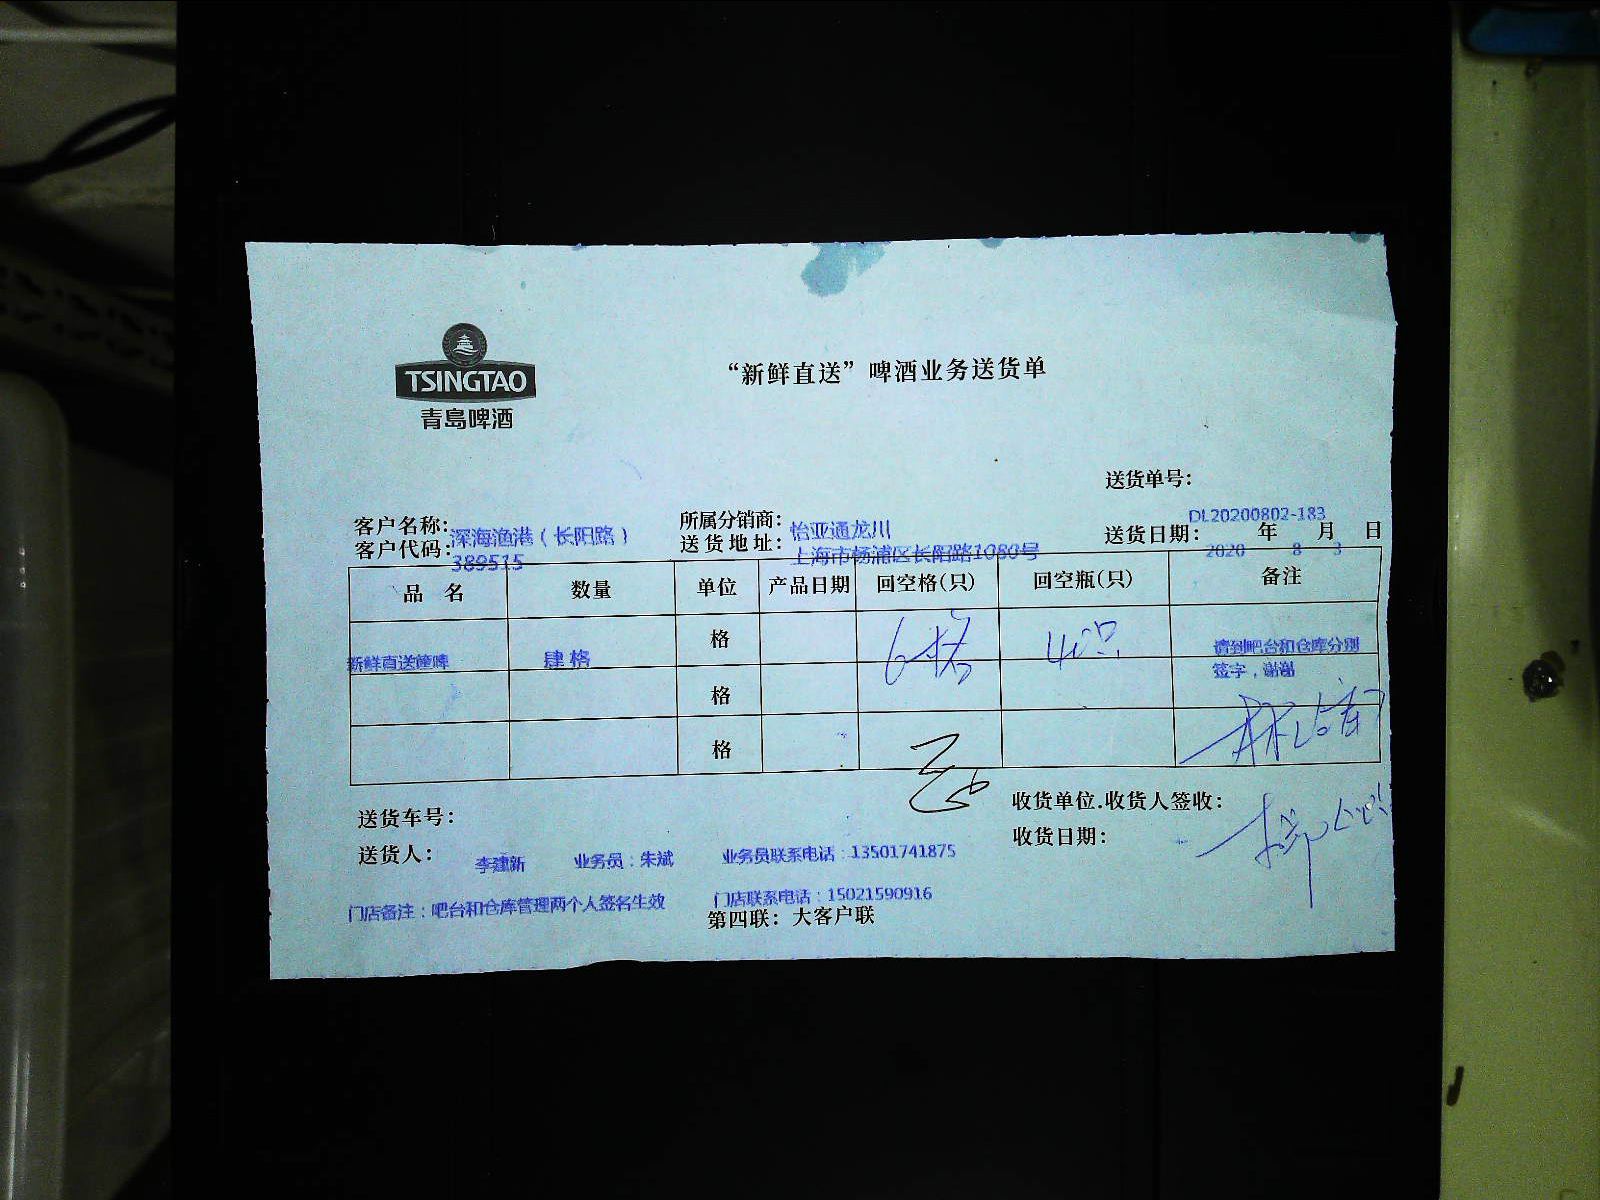 TSINGTAO
青島啤酒
“新鲜直送”啤酒业务送货单
送货单号：
DL20200802-183
客户名称： 深海渔港（长阳路）
所属分销商： 怡亚通龙川
送货日期： 2020 年 8 月 3 日
客户代码： 389515
送货地址： 上海市杨浦区长阳路1080号
品 名 数量 单位 产品日期 回空格(只) 回空瓶(只) 备注
新鲜直送箽啤 肆格 格 6格 40只 请到吧台和仓库分别
签字，谢谢
格
格
送货车号：
收货单位.收货人签收：
收货日期：
送货人： 李建新 业务员：朱斌 业务员联系电话：13501741875
门店备注：吧台和仓库管理两个人签名生效 门店联系电话：15021590916
第四联：大客户联